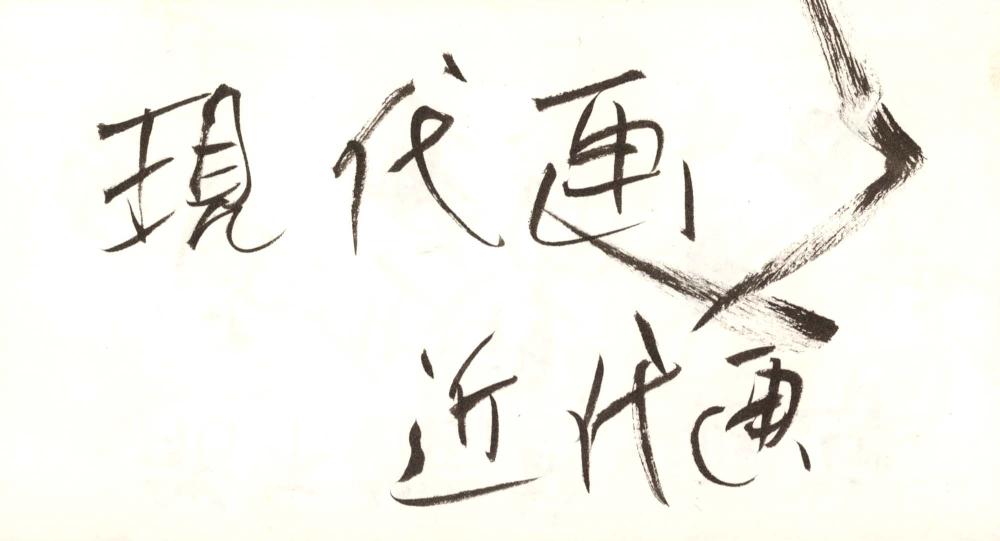 現代画
近代画